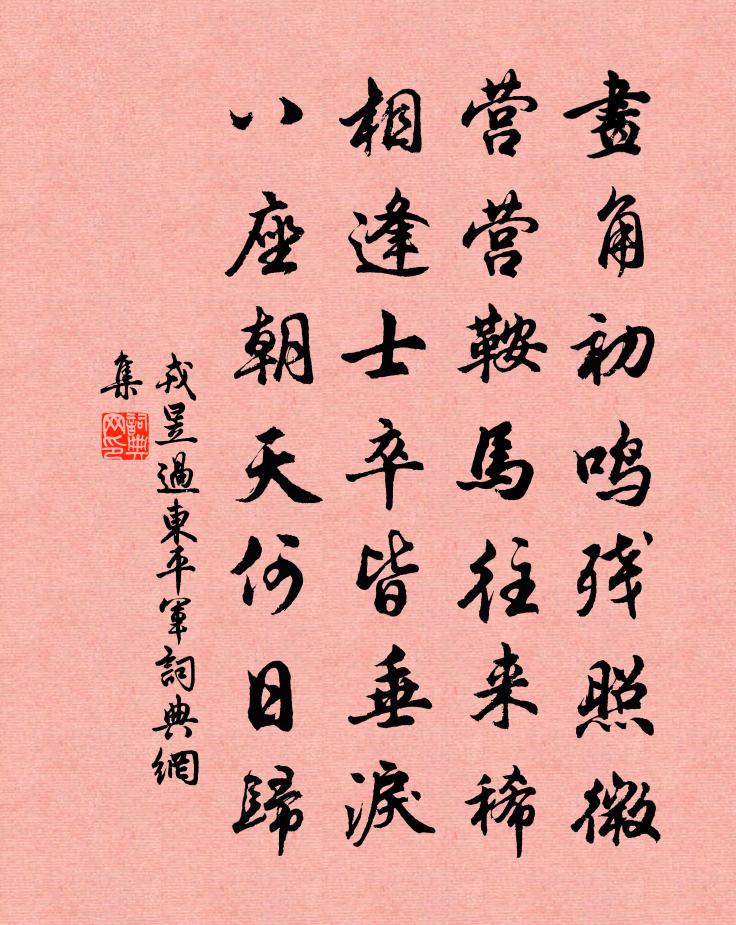 畫角初鸣残照微
营营鞍馬往来稀
相逢士卒皆垂淚
八座朝天何日歸
戎昱過東平軍詞典網
集
詞典
网印